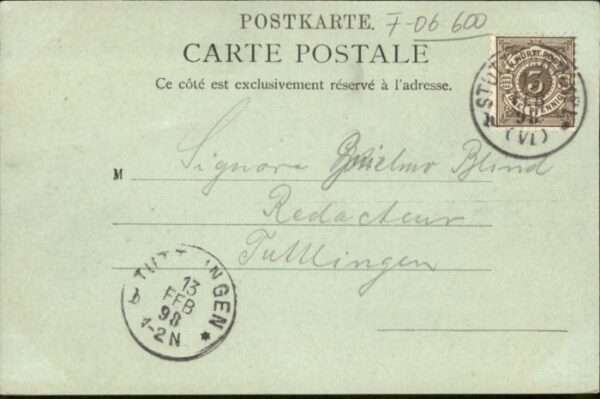 POSTKARTE. F-06 600
CARTE POSTALE
Ce côté est exclusivement réservé à l'adresse.
K. WÜRTT. POST
3
PFENNIG
STUTTGART
98
(VI)
M Signora Blind
Redacteur
Tuttlingen
TUTTLINGEN
13
FEB
98
1-2N